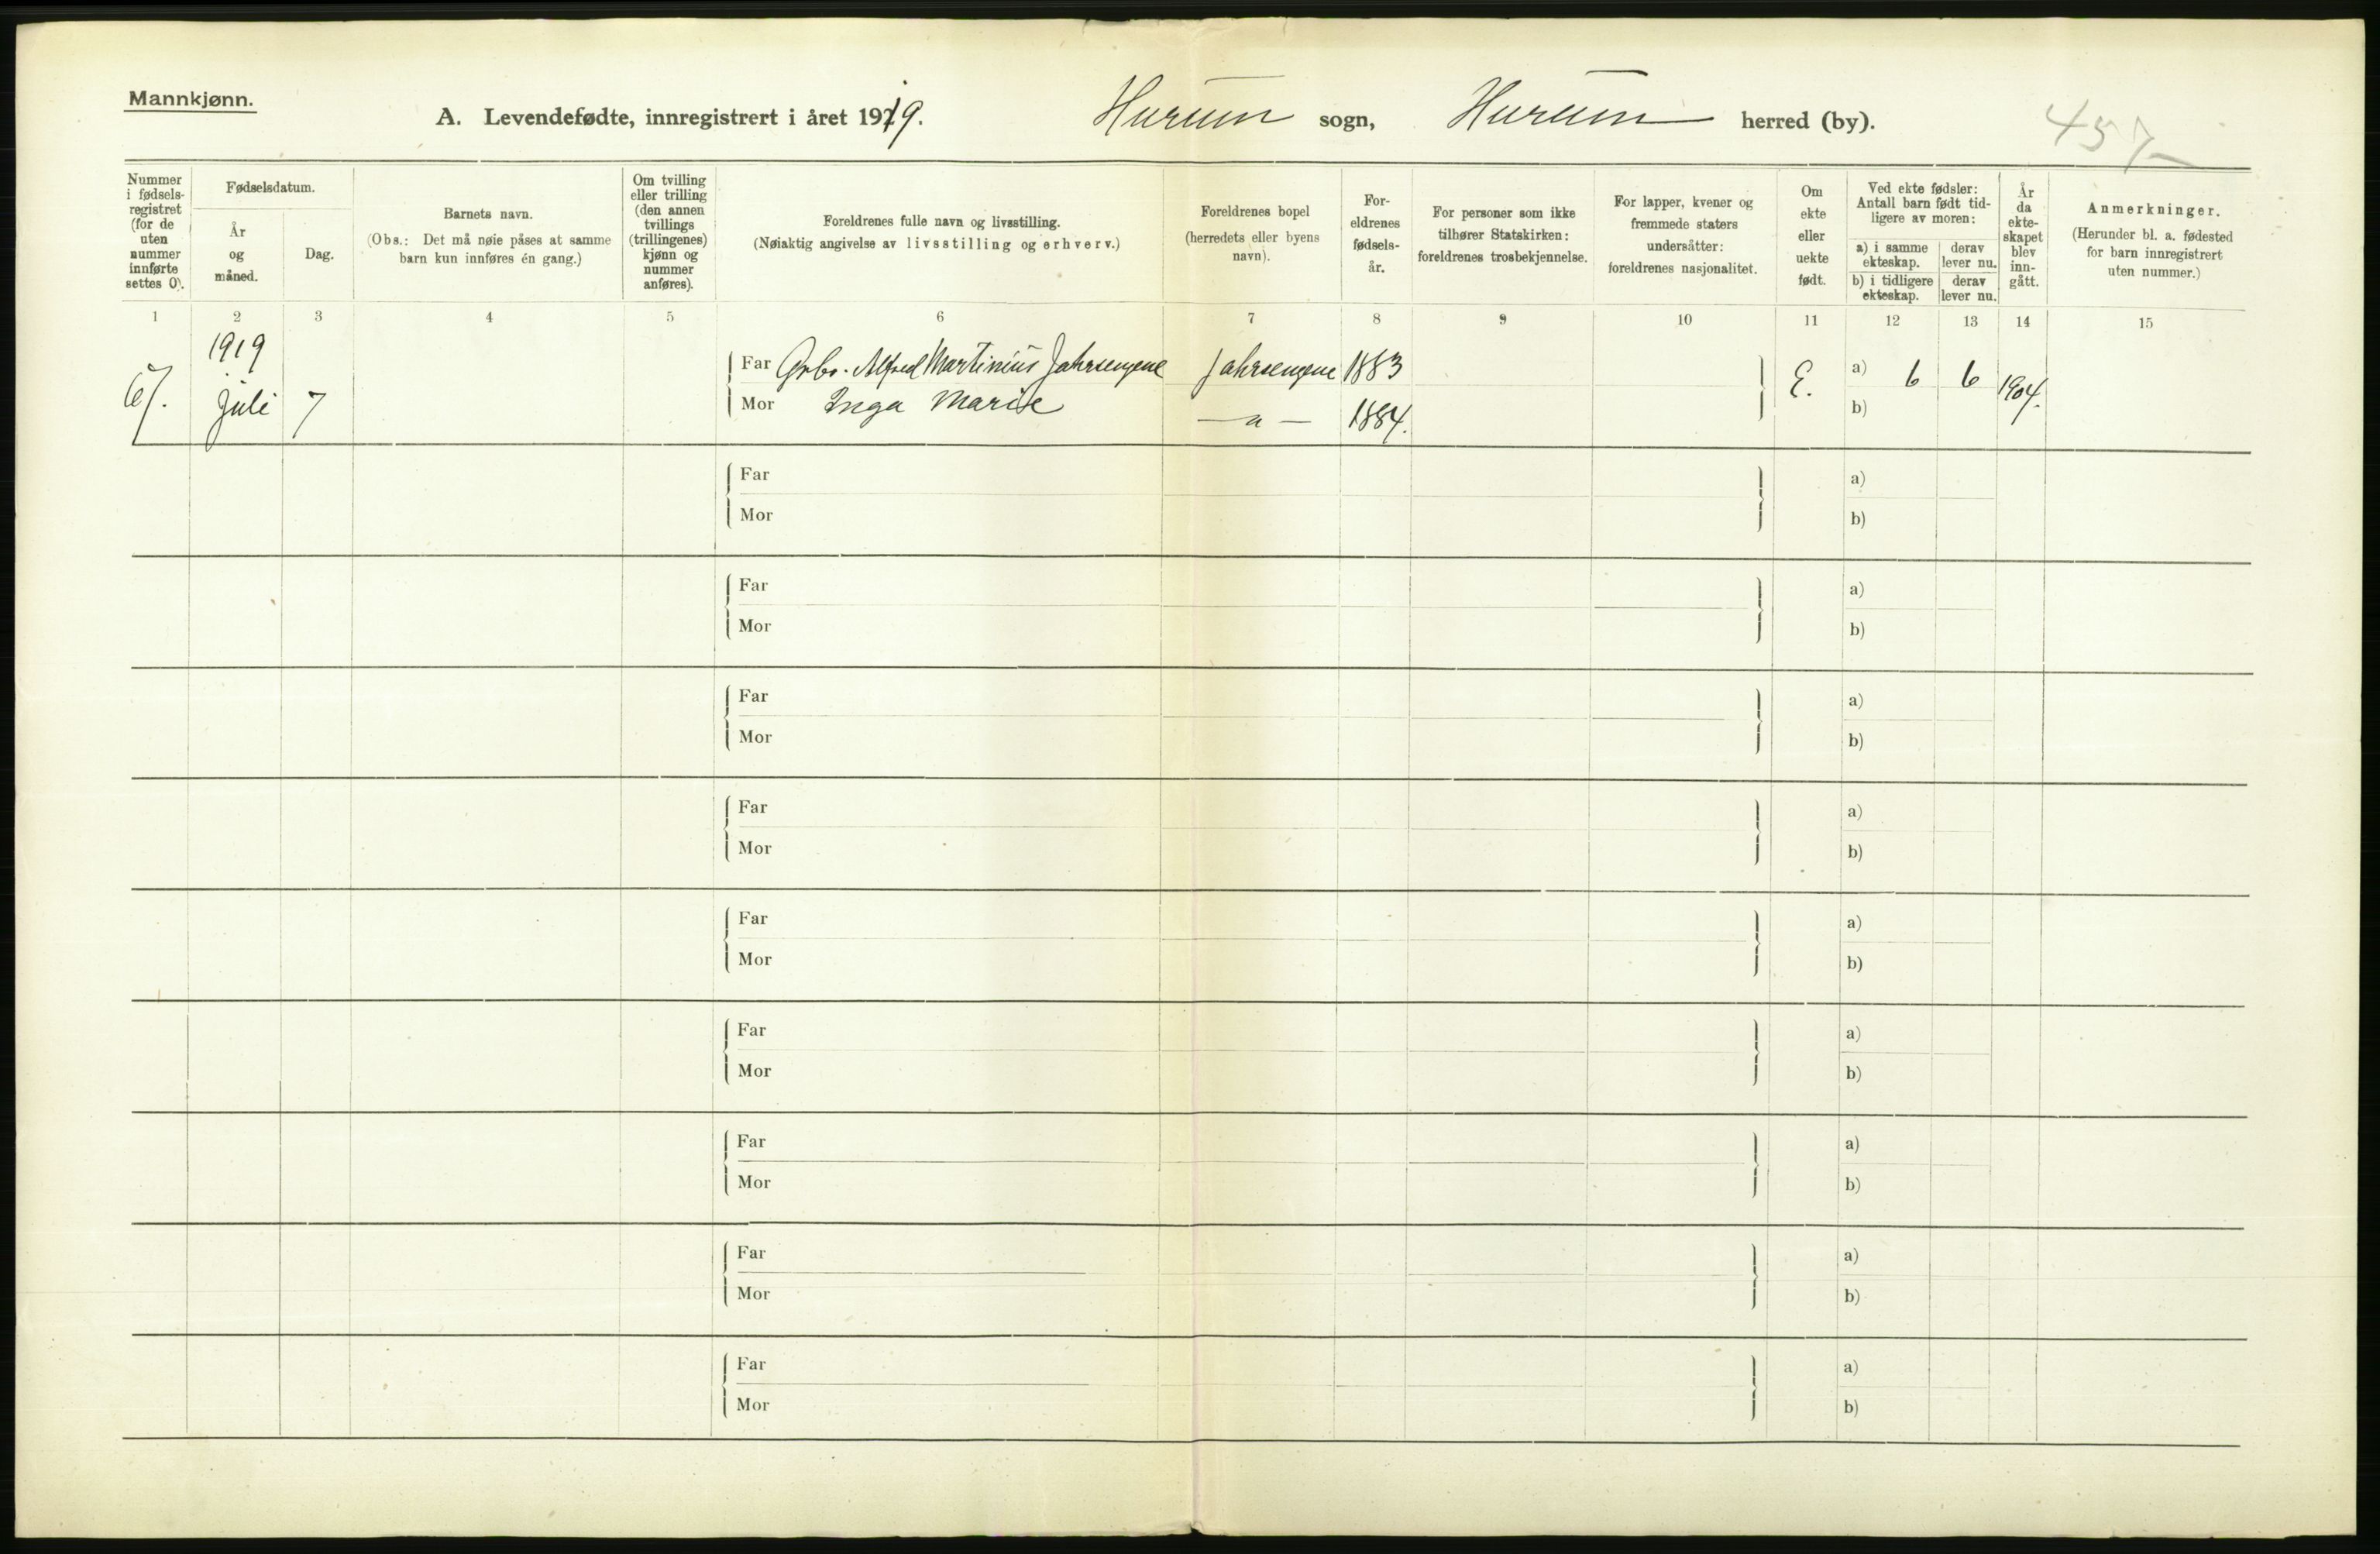 Mannkjønn.
A. Levendefødte, innregistrert i året 1919. Hurum sogn, Hurum herred (by).
457
Nummer i fødselsregistret (for de uten nummer innførte settes 0).
Fødselsdatum.
År og måned.
Dag.
Barnets navn.
(Obs.: Det må nøie påses at samme barn kun innføres én gang.)
Om tvilling eller trilling (den annen tvillings (trillingenes) kjønn og nummer anføres).
Foreldrenes fulle navn og livsstilling.
(Nøiaktig angivelse av livsstilling og erhverv.)
Foreldrenes bopel (herredets eller byens navn).
Foreldrenes fødselsår.
For personer som ikke tilhører Statskirken: foreldrenes trosbekjennelse.
For lapper, kvener og fremmede staters undersåtter: foreldrenes nasjonalitet.
Om ekte eller uekte født.
Ved ekte fødsler: Antall barn født tidligere av moren:
a) i samme ekteskap.
derav lever nu.
b) i tidligere ekteskap.
derav lever nu.
År da ekteskapet blev inngått.
Anmerkninger.
(Herunder bl. a. fødested for barn innregistrert uten nummer.)
1 2 3 4 5 6 7 8 9 10 11 12 13 14 15
1919
Juli 7
Far Alfred Martinius Jahrsengene Jahrsengene 1883 E. a) 6 6 1904.
Mor Inga Marie 1884. b)
Far a)
Mor b)
Far a)
Mor b)
Far a)
Mor b)
Far a)
Mor b)
Far a)
Mor b)
Far a)
Mor b)
Far a)
Mor b)
Far a)
Mor b)
Far a)
Mor b)